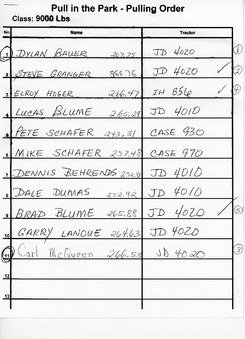 Pull in the Park - Pulling Order
Class: 9000 Lbs
No. Name Tractor
1 DYLAN BAUER 263.75 JD 4020 ①
2 STEVE GRANGER JD 4020 ✓ ②
3 ELROY HOGER 266.47 IH 856 ✓ ④
4 LUCAS BLUME 265.29 JD 4010
5 PETE SCHAFER 243.31 CASE 930
6 MIKE SCHAFER 257.48 CASE 970
7 DENNIS BEHRENDS JD 4010
8 DALE DUMAS 252.92 JD 4010
9 BRAD BLUME 265.88 JD 4020 ✓ ⑤
10 GARRY LANOUE 264.63 JD 4020
11 Carl McQueen 266.53 JD 4020 ③
12
13